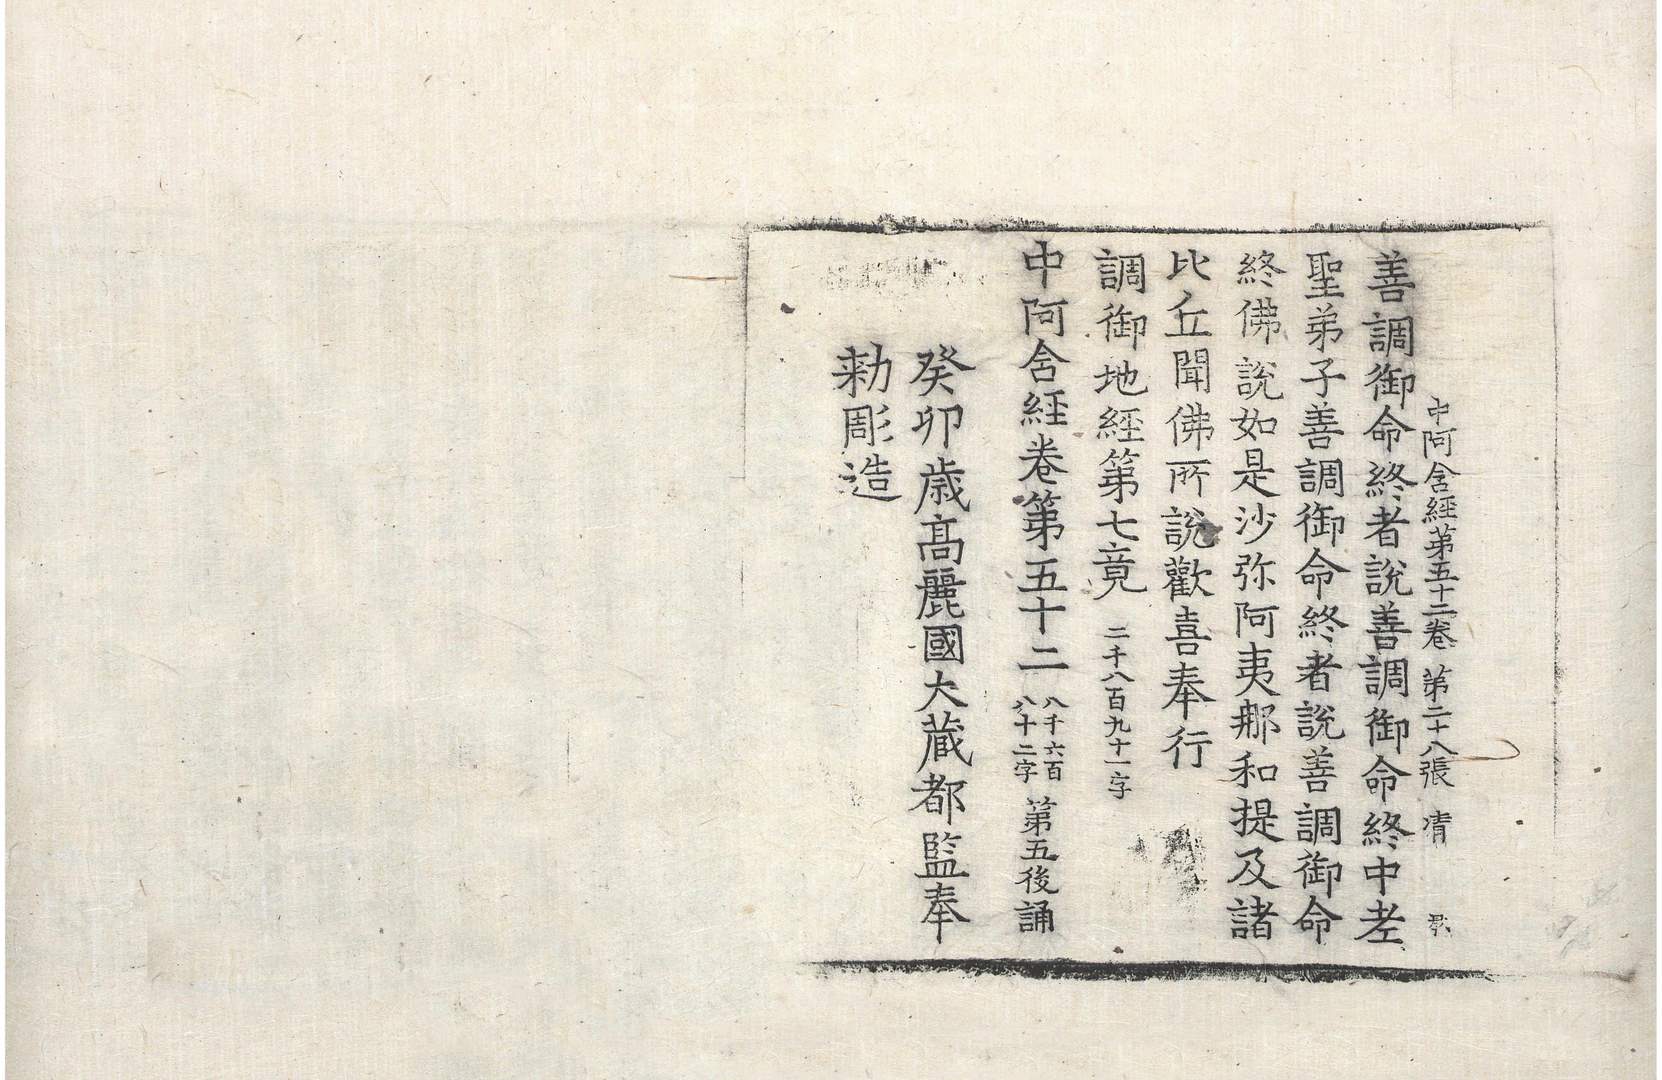 中阿含經第五十二卷 第二十八張 凊
善調御命終者說善調御命終中老
聖弟子善調御命終者說善調御命
終佛說如是沙弥阿夷那和提及諸
比丘聞佛所說歡喜奉行
調御地經第七竟 二千八百九十一字
中阿含經卷第五十二 八千六百八十二字 第五後誦
癸卯歳高麗國大藏都監奉
勑彫造